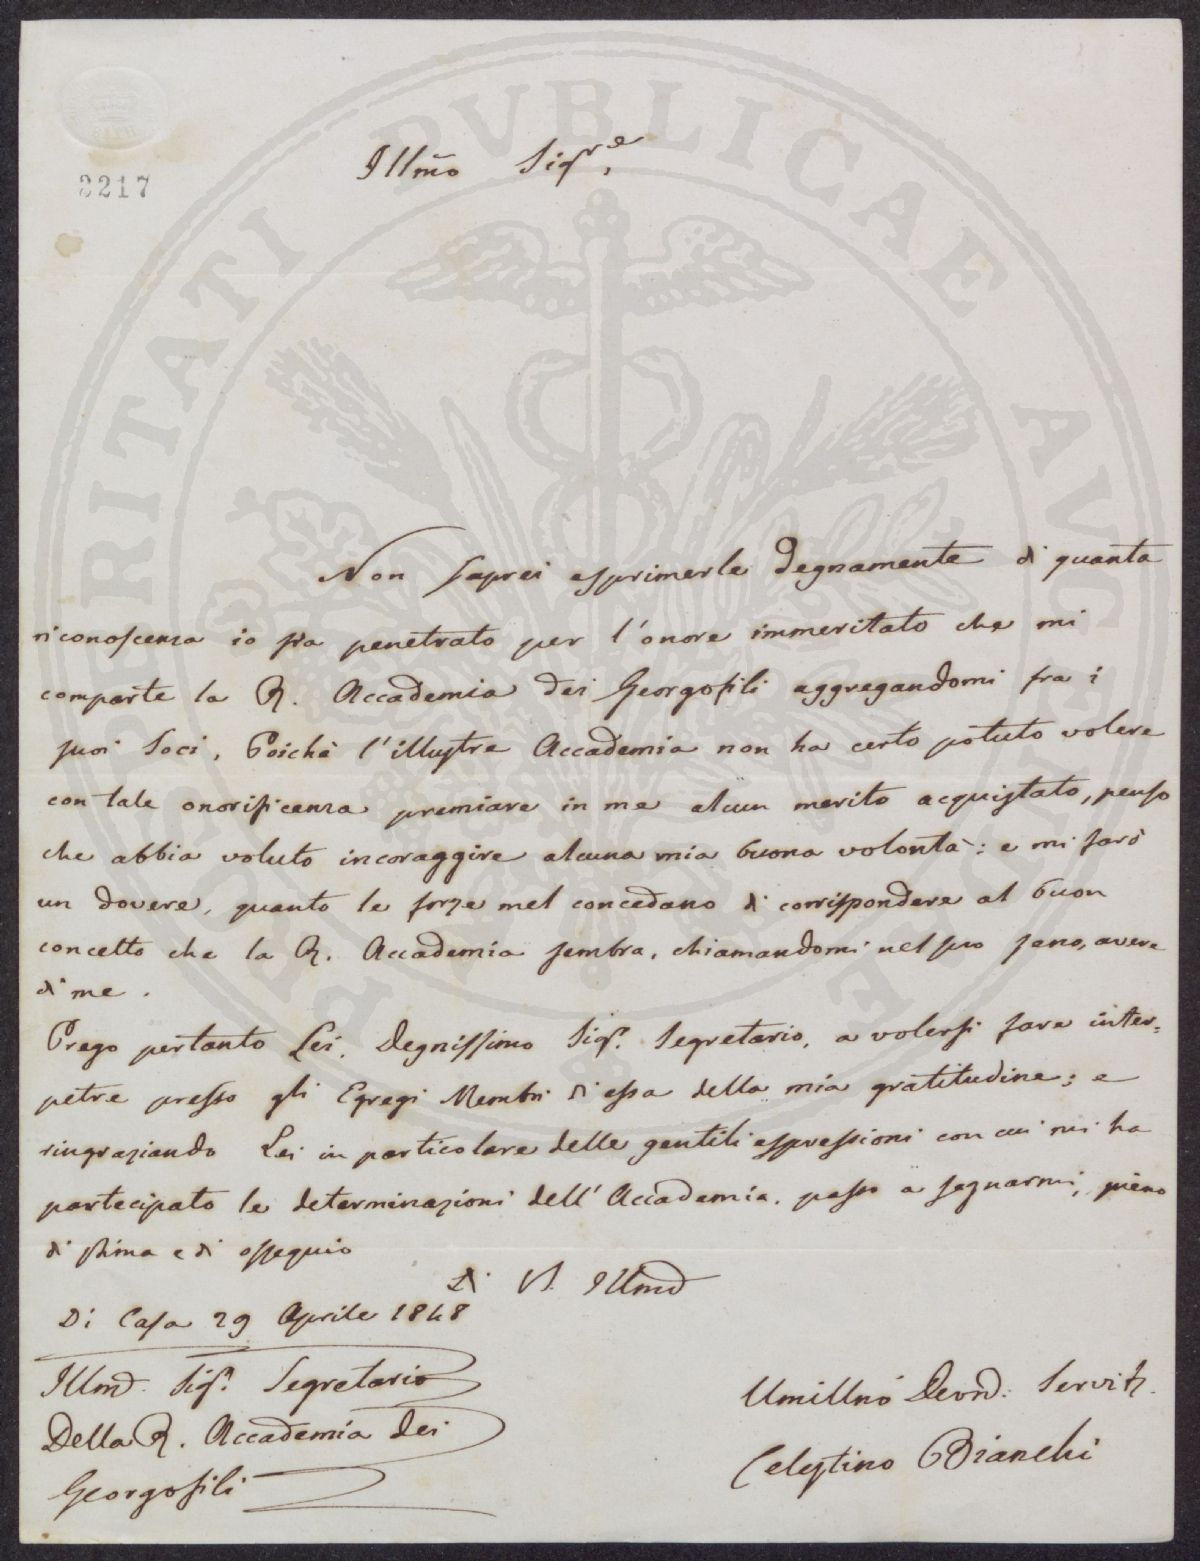 PROSPERITATI PVBLICAE AVGENDAE
3217
Illmo Sigre,
Non saprei esprimerle degnamente di quanta
riconoscenza io sia penetrato per l'onore immeritato che mi
comparte la R. Accademia dei Georgofili aggregandomi fra i
suoi Soci. Poichè l'illustre Accademia non ha certo potuto volere
con tale onorificenza premiare in me alcun merito acquistato, penso
che abbia voluto incoraggire alcuna mia buona volontà: e mi farò
un dovere, quanto le forze mel concedano di corrispondere al buon
concetto che la R. Accademia sembra, chiamandomi nel suo seno, avere
di me.
Prego pertanto Lei, Degnissimo Sigr. Segretario, a volersi fare inter=
petre presso gli Egregi Membri di essa della mia gratitudine; e
ringraziando Lei in particolare delle gentili espressioni con cui mi ha
partecipato le determinazioni dell'Accademia, passo a segnarmi, pieno
di stima e di ossequio
Di V. Illma
Di Casa 29 Aprile 1848
Illmo. Sigr. Segretario
Della R. Accademia dei
Georgofili
Umillmo Devmo. Servitr.
Celestino Bianchi